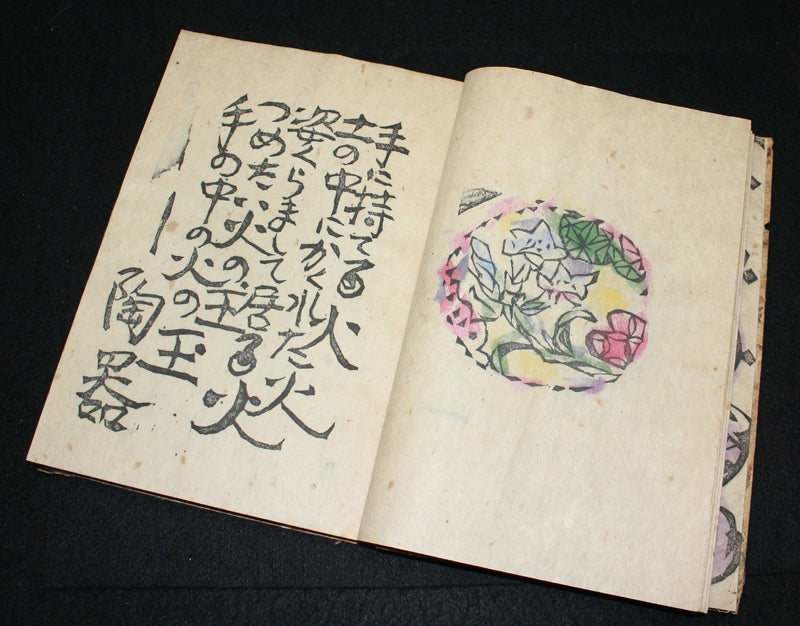 手に持てる火
土の中にかくれた火
姿くらまして居る火
つめたい火の玉
手の中の火の玉
陶器